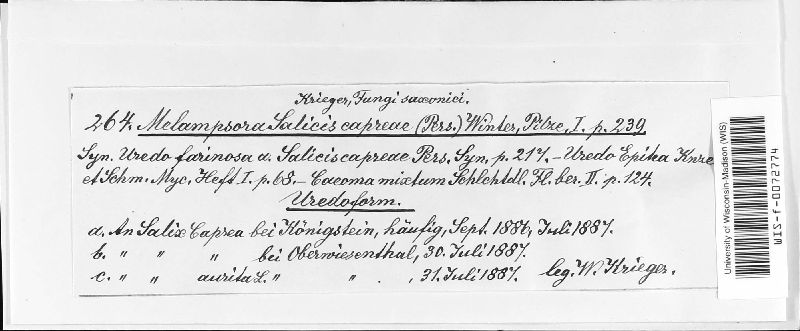 Krieger, Fungi saxonici.
264. Melampsora Salicis capreae (Pers.) Winter, Pilze, I. p. 239
Syn. Uredo farinosa a. Salicis capreae Pers. Syn. p. 217. – Uredo Epitea Knze
et Schm. Myc. Heft I. p. 68. – Caeoma mixtum Schlchtdl. Fl. ber. II. p. 124.
Uredoform.
a. An Salix Caprea bei Königstein, häufig, Sept. 1886, Juli 1887.
b. " " " bei Oberwiesenthal, 30. Juli 1887.
c. " " aurita L. " " , 31. Juli 1887. leg. W. Krieger.
University of Wisconsin-Madison (WIS)
WIS-f-0072774